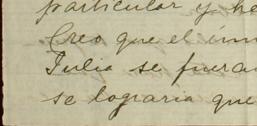 particular y he
Creo que el inm
Julia se fueran
se lograria que